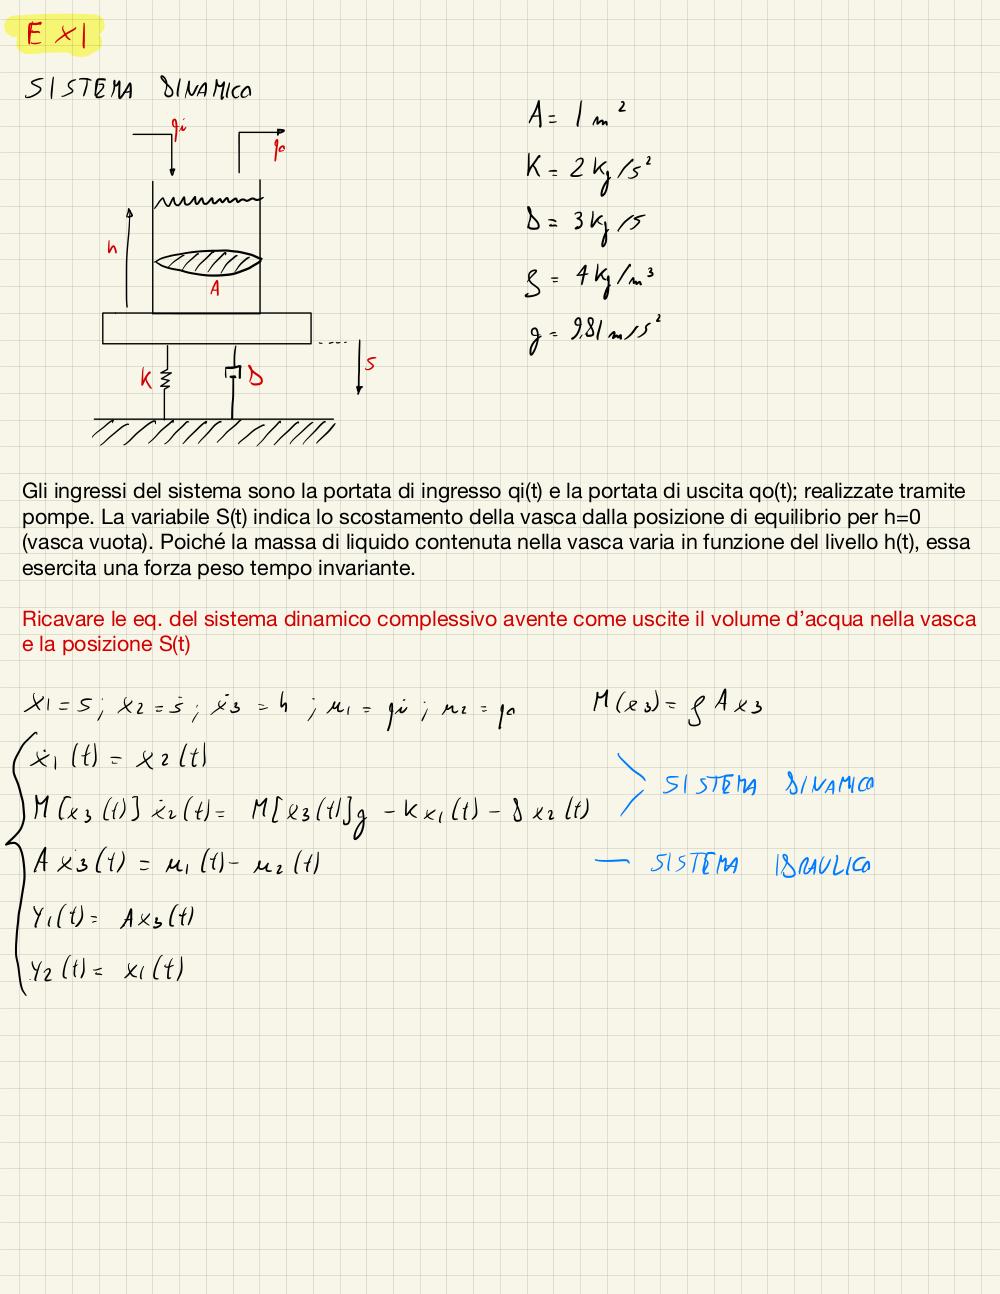 EX1
SISTEMA DINAMICO
qi
qo
h
A
K
D
S
A = 1 m²
K = 2 kg/s²
D = 3 kg/s
ρ = 4 kg/m³
g = 9,81 m/s²
Gli ingressi del sistema sono la portata di ingresso qi(t) e la portata di uscita qo(t); realizzate tramite
pompe. La variabile S(t) indica lo scostamento della vasca dalla posizione di equilibrio per h=0
(vasca vuota). Poiché la massa di liquido contenuta nella vasca varia in funzione del livello h(t), essa
esercita una forza peso tempo invariante.
Ricavare le eq. del sistema dinamico complessivo avente come uscite il volume d'acqua nella vasca
e la posizione S(t)
x1 = s ; x2 = ṡ ; ẋ3 = h ; μ1 = qi ; μ2 = qo M(x3) = ρ A x3
ẋ1(t) = x2(t)
M[x3(t)] ẋ2(t) = M[x3(t)]g - K x1(t) - D x2(t)
SISTEMA DINAMICO
A ẋ3(t) = μ1(t) - μ2(t)
SISTEMA IDRAULICO
Y1(t) = A x3(t)
Y2(t) = x1(t)